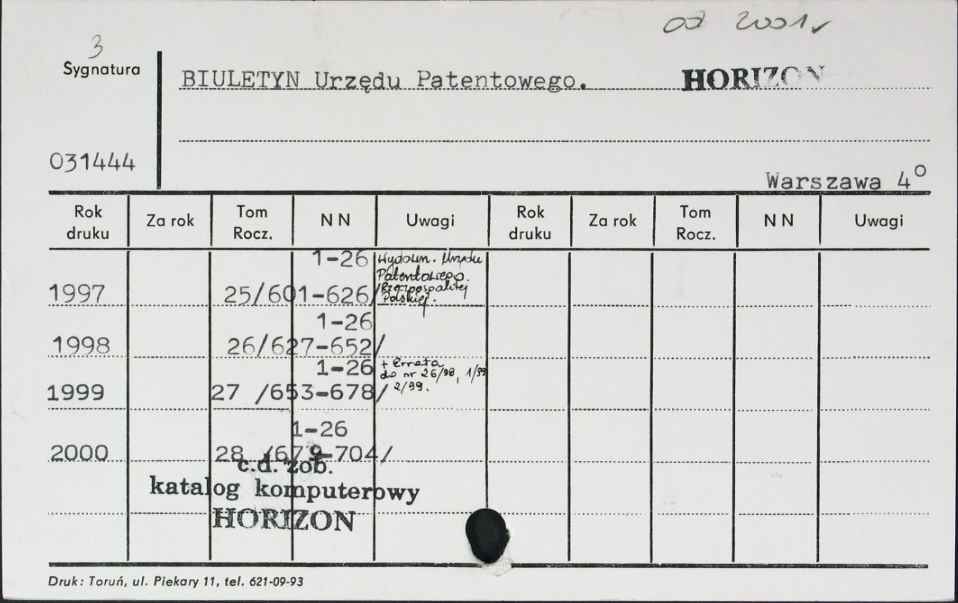 od 2001
3
Sygnatura
BIULETYN Urzędu Patentowego. HORIZON
031444
Warszawa 4°
Rok druku Za rok Tom Rocz. N N Uwagi Rok druku Za rok Tom Rocz. N N Uwagi
1-26 Wydawn. Urzędu
Patentowego.
1997 25/601-626/ Rzeczpospolitej
Polskiej.
1-26
1998 26/627-652/
1-26 + Errata
do nr 26/98, 1/99
1999 27 /653-678/ 2/99.
1-26
2000 28 /679-704/
c.d. zob.
katalog komputerowy
HORIZON
Druk: Toruń, ul. Piekary 11, tel. 621-09-93